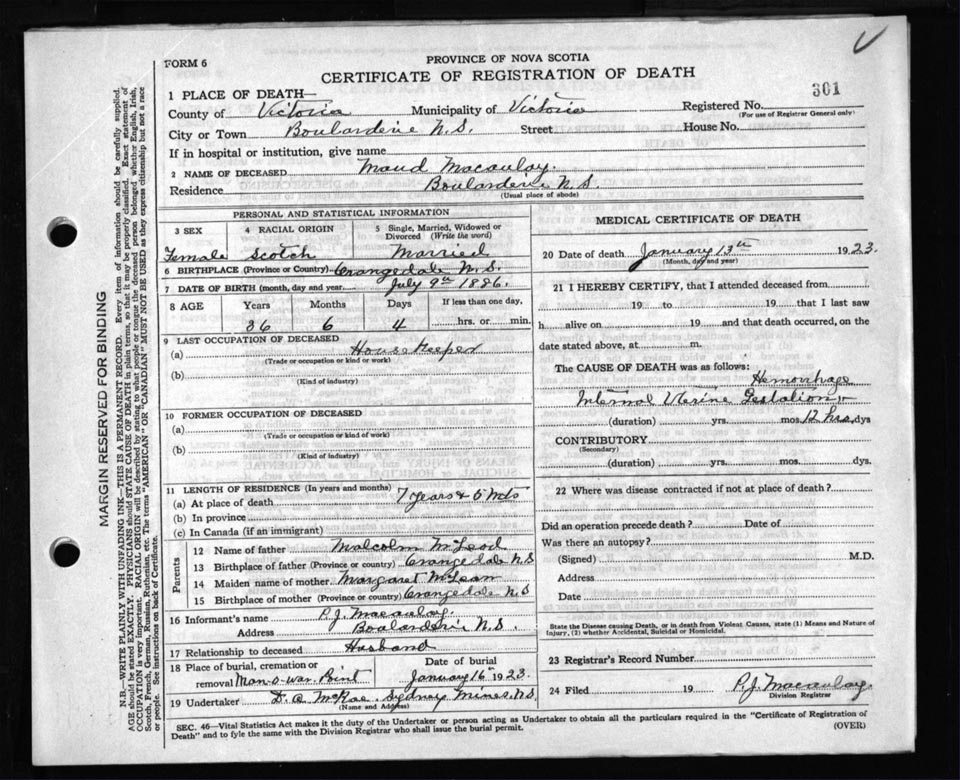 FORM 6
PROVINCE OF NOVA SCOTIA
CERTIFICATE OF REGISTRATION OF DEATH
301
1 PLACE OF DEATH—
County of Victoria Municipality of Victoria Registered No.
(For use of Registrar General only)
City or Town Boularderie N.S. Street House No.
If in hospital or institution, give name
2 NAME OF DECEASED Maud Macaulay.
Residence Boularderie N.S.
(Usual place of abode)
PERSONAL AND STATISTICAL INFORMATION
3 SEX 4 RACIAL ORIGIN 5 Single, Married, Widowed or Divorced (Write the word)
Female Scotch Married
6 BIRTHPLACE (Province or Country) Orangedale N.S.
7 DATE OF BIRTH (month, day and year) July 9th 1886.
8 AGE Years Months Days If less than one day,
36 6 4 hrs. or min.
9 LAST OCCUPATION OF DECEASED
(a) House Keeper
(Trade or occupation or kind or work)
(b)
(Kind of industry)
10 FORMER OCCUPATION OF DECEASED
(a)
(Trade or occupation or kind of work)
(b)
(Kind of industry)
11 LENGTH OF RESIDENCE (In years and months)
(a) At place of death 7 years & 5 Mts
(b) In province
(c) In Canada (if an immigrant)
Parents
12 Name of father Malcolm McLeod
13 Birthplace of father (Province or country) Orangedale N.S
14 Maiden name of mother Margaret McLean
15 Birthplace of mother (Province or country) Orangedale N.S
16 Informant's name P.J. Macaulay.
Address Boularderie N.S.
17 Relationship to deceased Husband
18 Place of burial, cremation or removal Man-o-war Point
Date of burial
January 16th 1923.
19 Undertaker D.A. McRae. Sydney Mines, N.S.
(Name and Address)
MEDICAL CERTIFICATE OF DEATH
20 Date of death January 13th 1923.
(Month, day and year)
21 I HEREBY CERTIFY, that I attended deceased from
19 to 19 that I last saw
h alive on 19 and that death occurred, on the
date stated above, at m.
The CAUSE OF DEATH was as follows: Hemorrhage
Internal Uterine Gestation
(duration) yrs. mos. 12 hrs. dys
CONTRIBUTORY
(Secondary)
(duration) yrs. mos. dys.
22 Where was disease contracted if not at place of death?
Did an operation precede death? Date of
Was there an autopsy?
(Signed) M.D.
Address
Date
State the Disease causing Death, or in death from Violent Causes, state (1) Means and Nature of
Injury, (2) whether Accidental, Suicidal or Homicidal.
23 Registrar's Record Number
24 Filed 19 P.J. Macaulay.
Division Registrar
SEC. 46—Vital Statistics Act makes it the duty of the Undertaker or person acting as Undertaker to obtain all the particulars required in the "Certificate of Registration of
Death" and to fyle the same with the Division Registrar who shall issue the burial permit.
(OVER)
MARGIN RESERVED FOR BINDING
N.B.—WRITE PLAINLY WITH UNFADING INK—THIS IS A PERMANENT RECORD. Every item of information should be carefully supplied.
AGE should be stated EXACTLY. PHYSICIANS should STATE CAUSE OF DEATH in plain terms, so that it may be properly classified. Exact statement of
OCCUPATION is very important. RACIAL ORIGIN will be described by stating to what people or tongue the deceased person belonged whether English, Irish,
Scotch, French, German, Russian, Ruthenian, etc. The terms "AMERICAN" OR "CANADIAN" MUST NOT BE USED as they express citizenship but not a race
or people. See instructions on back of Certificate.